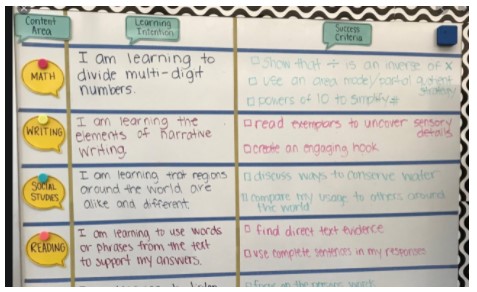 Content
Area
Learning
Intention
Success
Criteria
MATH
I am learning to
divide multi-digit
numbers.
□ Show that ÷ is an inverse of x
□ use an area model/partial quotient
strategy
□ powers of 10 to simplify #
WRITING
I am learning the
elements of narrative
writing.
□ read exemplars to uncover sensory
details
□ create an engaging hook
SOCIAL
STUDIES
I am learning that regions
around the world are
alike and different
□ discuss ways to conserve water
□ compare my usage to others around
the world
READING
I am learning to use words
or phrases from the text
to support my answers.
□ find direct text evidence
□ use complete sentences in my responses